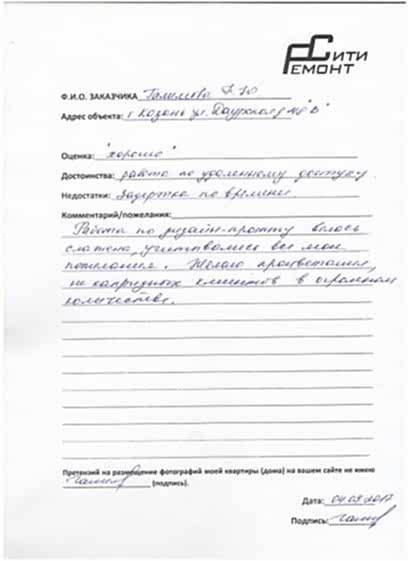 СИТИ
РЕМОНТ
Ф.И.О. ЗАКАЗЧИКА
Адрес объекта: г Казань ул. Даурская д
Оценка: "хорошо"
Достоинства: работа по удаленному доступу.
Недостатки: Задержка по времени.
Комментарий/пожелания:
Работа по дизайн-проекту велась
слажена, учитывались все мои
пожелания. Желаю процветания,
не капризных клиентов в огромном
количестве.
Претензий на размещение фотографий моей квартиры (дома) на вашем сайте не имею
(подпись).
Дата: 2017
Подпись: